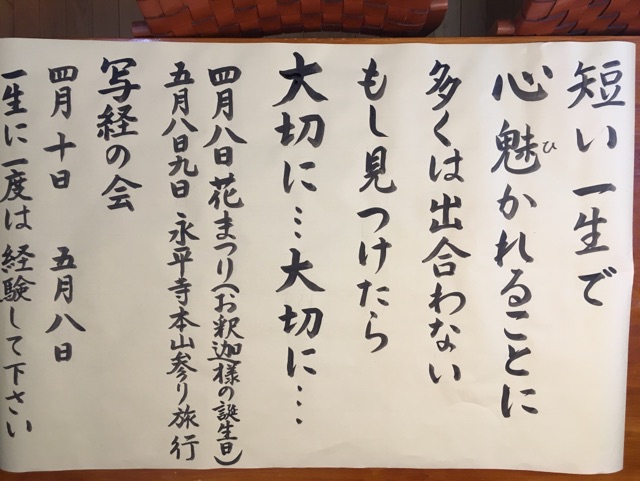 短い一生で
心魅かれることに
ひ
多くは出合わない
もし見つけたら
大切に…大切に…
四月八日 花まつり(お釈迦様の誕生日)
五月八日九日 永平寺本山参り旅行
写経の会
四月十日 五月八日
一生に一度は経験して下さい